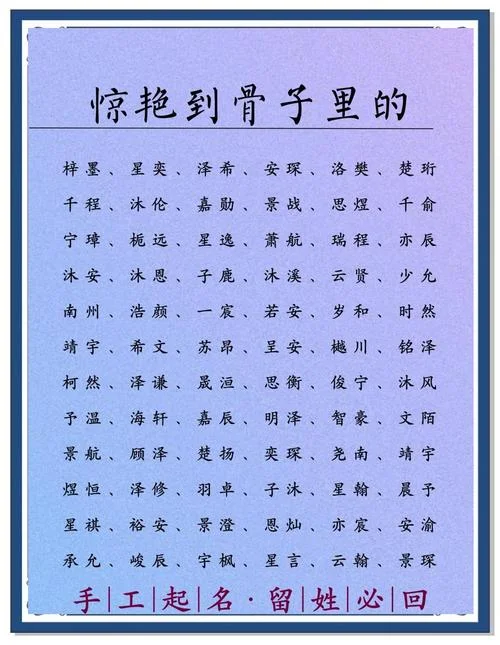 惊艳到骨子里的
梓墨、星奕、泽希、安琛、洛樊、楚珩
千程、沐伦、嘉勋、景战、思煜、千俞
宁璋、栀远、星逸、萧航、瑞程、亦辰
沐安、沐恩、子鹿、沐溪、云贤、少允
南州、浩颜、一宸、若安、岁和、时然
靖宇、希文、苏昂、呈安、樾川、铭泽
柯然、泽谦、晟洹、思衡、俊宁、沐风
予温、海轩、嘉辰、明泽、智豪、文陌
景航、顾泽、楚扬、奕琛、尧南、靖宇
煜恒、泽修、羽卓、子沐、星翰、晨予
星祺、裕安、景澄、恩灿、亦宸、安渝
承允、峻辰、宇枫、星言、云翰、景琛
手|工|起|名·留|姓|必|回